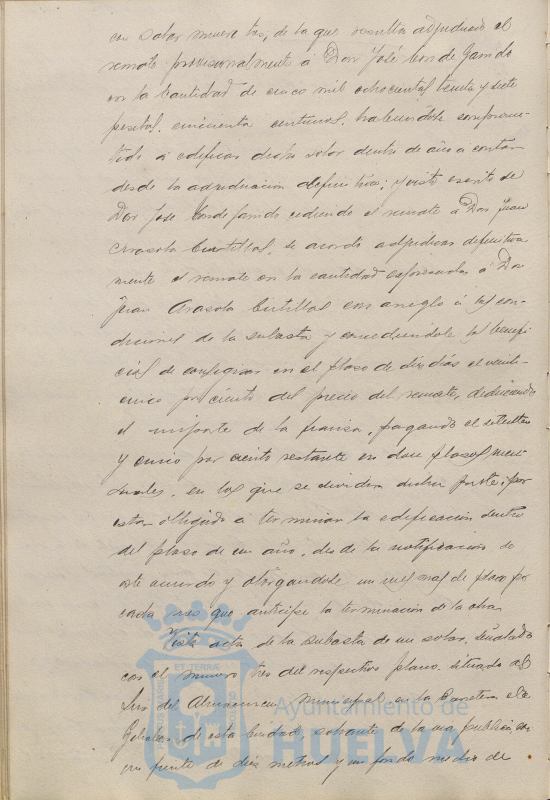 con solar numero tres, de la que resulta adjudicado el
remate provisionalmente á Don José Conde Garrido
en la cantidad de cinco mil ochocientas treinta y siete
pesetas, cincuenta centimos, habiendose comprome-
tido á edificar dicho solar dentro de año a contar
desde la adjudicacion definitiva; y visto escrito de
Don José Conde Garrido cediendo el remate á Don Juan
Arasola Cutillas, se acordó adjudicar definitiva
mente el remate en la cantidad expresada á Don
Juan Arasola Cutillas con arreglo á las con-
diciones de la subasta y concediendole los benefi-
cios de consignar en el plazo de diez dias el veinte
cinco por ciento del precio del remate, deduciendo
el importe de la fianza, pagando el setenta
y cinco por ciento restante en doce plazos men-
suales, en los que se dividirá dicha parte; por
estar obligado a terminar la edificación dentro
del plazo de un año, desde la notificacion de
este acuerdo y otorgandole un mes mas de plazo por
cada mes que anticipe la terminación de la obra.
Vista acta de la subasta de un solar, señalado
con el numero tres del respectivo plano, situado al
Sur del Almacen Municipal en la Carretera de
de esta Ciudad, sobrante de la via publica, con
un frente de diez metros y un fondo medio de
ET TERRA
Ayuntamiento de
HUELVA